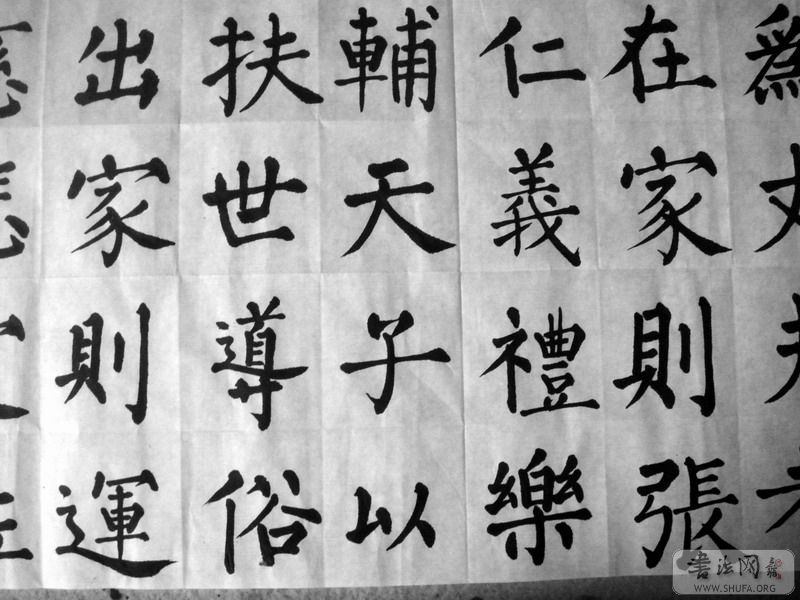 爲丈
在家則張
仁義禮樂
輔天子以
扶世導俗
出家則運
書法网
WWW.SHUFA.ORG